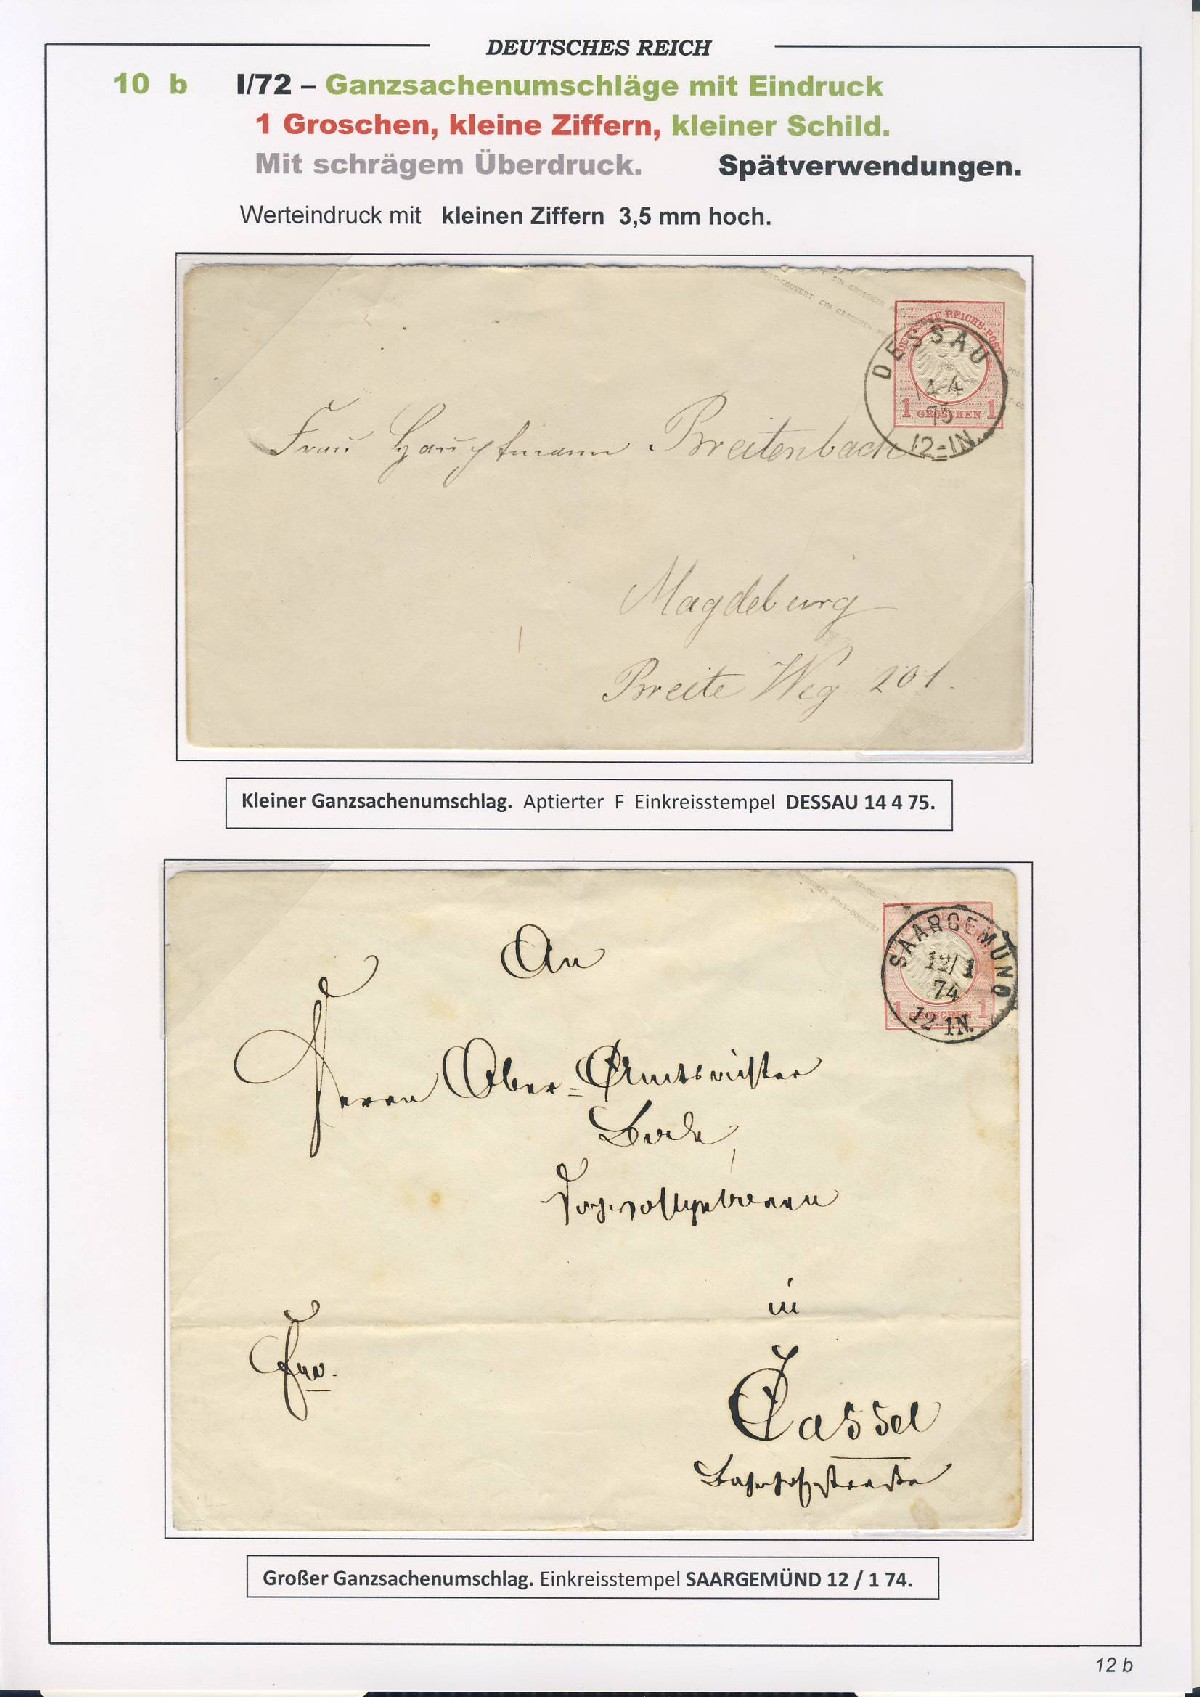 DEUTSCHES REICH
10 b I/72 – Ganzsachenumschläge mit Eindruck
1 Groschen, kleine Ziffern, kleiner Schild.
Mit schrägem Überdruck. Spätverwendungen.
Werteindruck mit kleinen Ziffern 3,5 mm hoch.
DEUTSCHE REICHS-POST
1 GROSCHEN 1
DESSAU
14 4
75
12-1N.
Frau Hauptmann Breitenbach
Magdeburg
Breite Weg 201.
Kleiner Ganzsachenumschlag. Aptierter F Einkreisstempel DESSAU 14 4 75.
SAARGEMÜND
12/1
74
12-1N.
1 1
An
Herrn Ober-Amtsrichter
Bode
in
Cassel
Bahnhofstraße
Großer Ganzsachenumschlag. Einkreisstempel SAARGEMÜND 12 / 1 74.
12 b